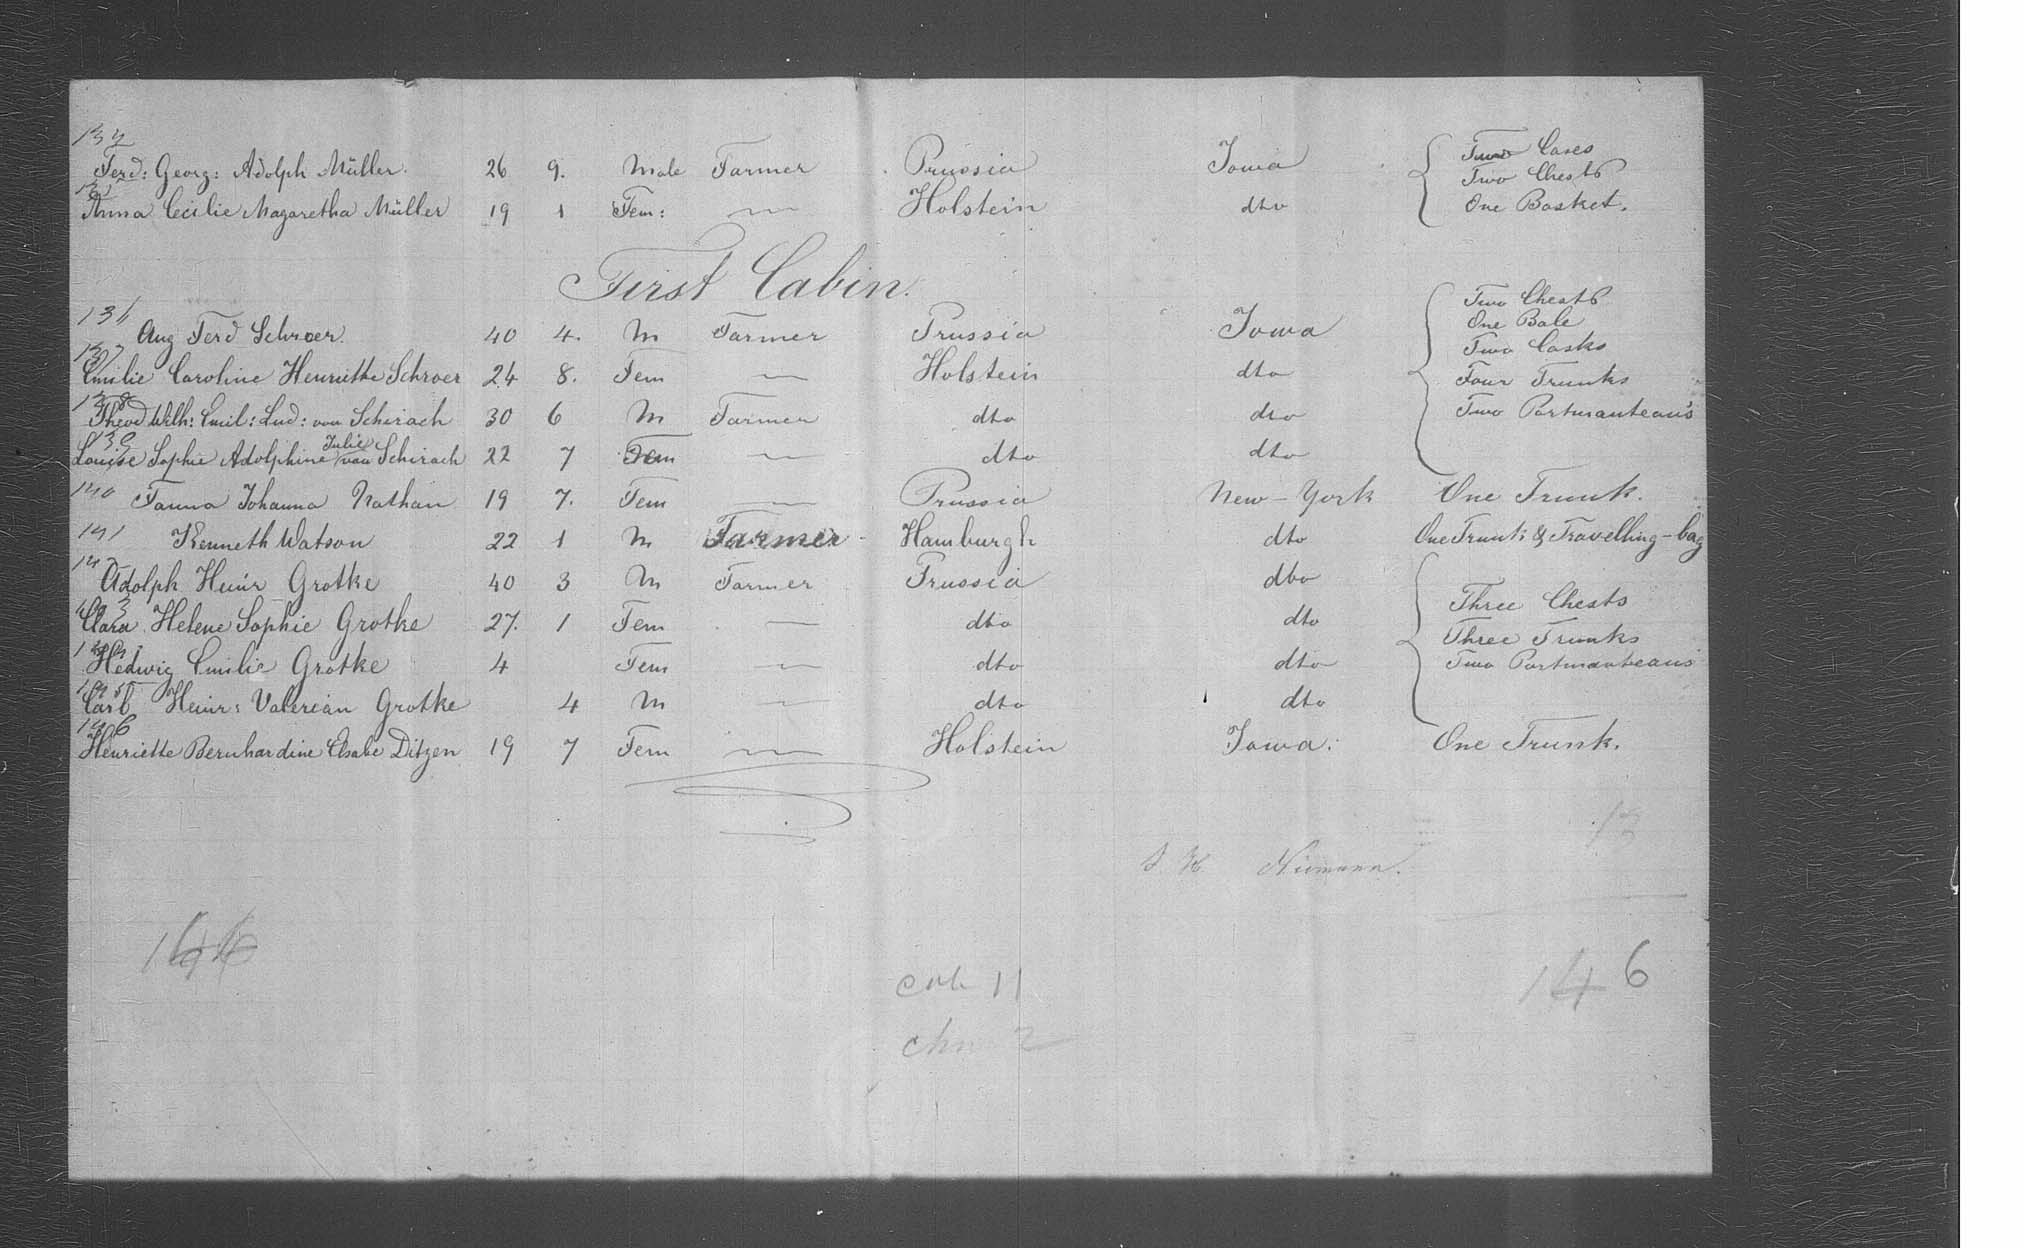 134
Ferd: Georg: Adolph Müller. 26 9. Male Farmer Prussia Iowa Two Cases
Two Chests
135
Anna Cecilie Magaretha Müller 19 1 Fem: — Holstein dto One Basket.
First Cabin.
Two Chests
136
Aug Ferd Schroer. 40 4. M Farmer Prussia Iowa One Bale
Two Casks
137
Emilie Caroline Henriette Schroer 24 8. Fem — Holstein dto Four Trunks
138
Theod Wilh: Emil: Lud: von Schirach 30 6 M Farmer dto dto Two Portmanteau's
139
Louise Sophie Adolphine Julie von Schirach 22 7 Fem — dto dto
140
Fanna Johanna Nathan 19 7. Fem — Prussia New-York One Trunk.
141
Kenneth Watson 22 1 M Farmer Hamburgh dto One Trunk & Travelling-bag
142
Adolph Heinr Grotke 40 3 M Farmer Prussia dto
Three Chests
143
Clara Helene Sophie Grotke 27. 1 Fem — dto dto Three Trunks
144
Hedwig Emilie Grotke 4 Fem — dto dto Two Portmanteaus
145
Carl Heinr: Valerian Grotke 4 M — dto dto
146
Henriette Bernhardine Elsabe Ditzen 19 7 Fem — Holstein Iowa. One Trunk.
13
Niemann.
146
146
11
2